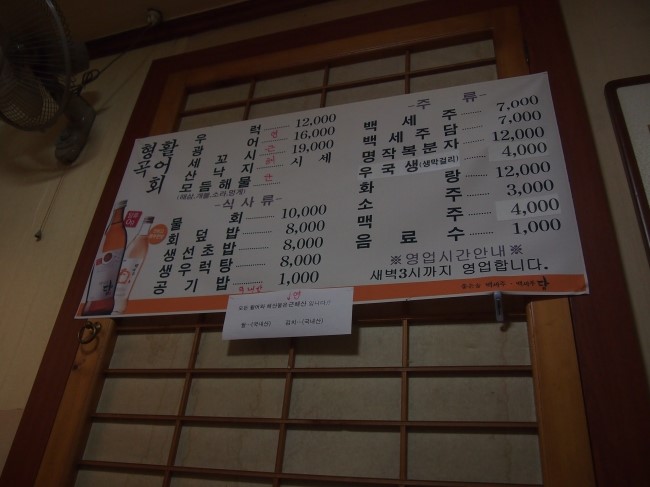 형곡 활어회
우럭 12,000
광어 16,000
세꼬시 19,000
산낙지 시세
모듬해물
(해삼,개불,소라,멍게)
-식사류-
물회 10,000
회덮밥 8,000
생선초밥 8,000
생우럭탕 8,000
공기밥 1,000
-주류-
백세주 7,000
백세주담 7,000
명작복분자 12,000
우국생(생막걸리) 4,000
화랑 12,000
소주 3,000
맥주 4,000
음료수 1,000
※영업시간안내※
새벽3시까지 영업합니다.
백세주 · 백세주 담
모든 활어와 해산물은근해산 입니다.!!
쌀-(국내산) 김치-(국내산)